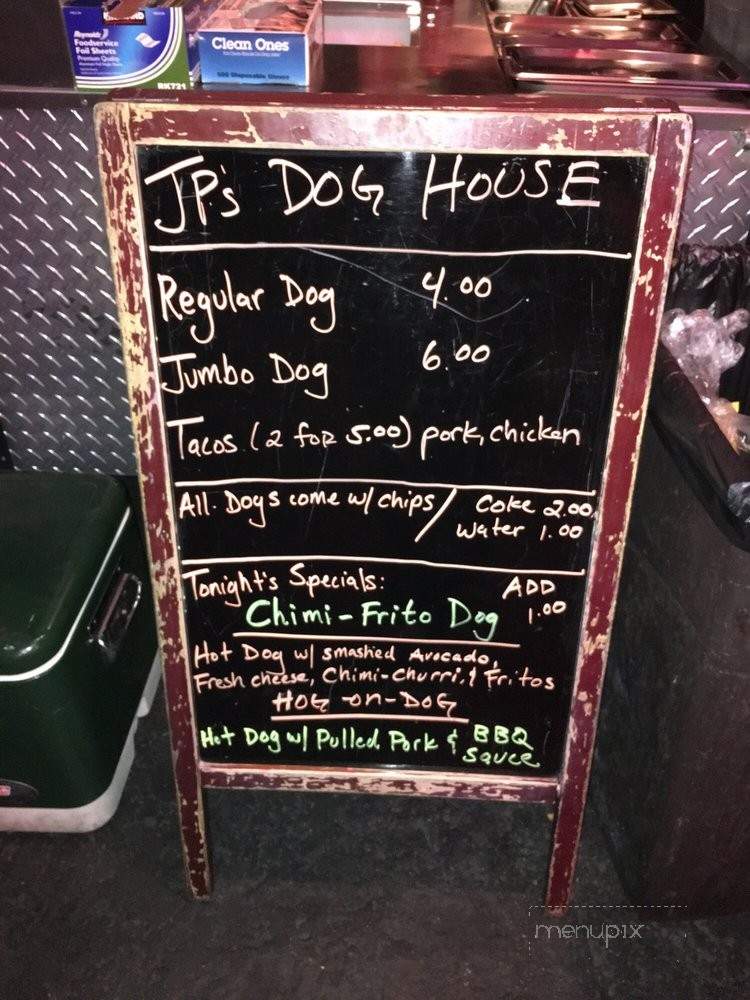 Reynolds
Foodservice
Foil Sheets
Premium Quality
RK721
Clean Ones
500 Disposable Gloves
JP's DOG HOUSE
Regular Dog 4.00
Jumbo Dog 6.00
Tacos (2 for 5.00) pork, chicken
All Dogs come w/ chips / Coke 2.00
Water 1.00
Tonight's Specials: ADD
Chimi-Frito Dog 1.00
Hot Dog w/ smashed Avocado,
Fresh cheese, Chimi-Churri, & Fritos
HOG-on-DOG
Hot Dog w/ Pulled Pork & BBQ
Sauce
menupix